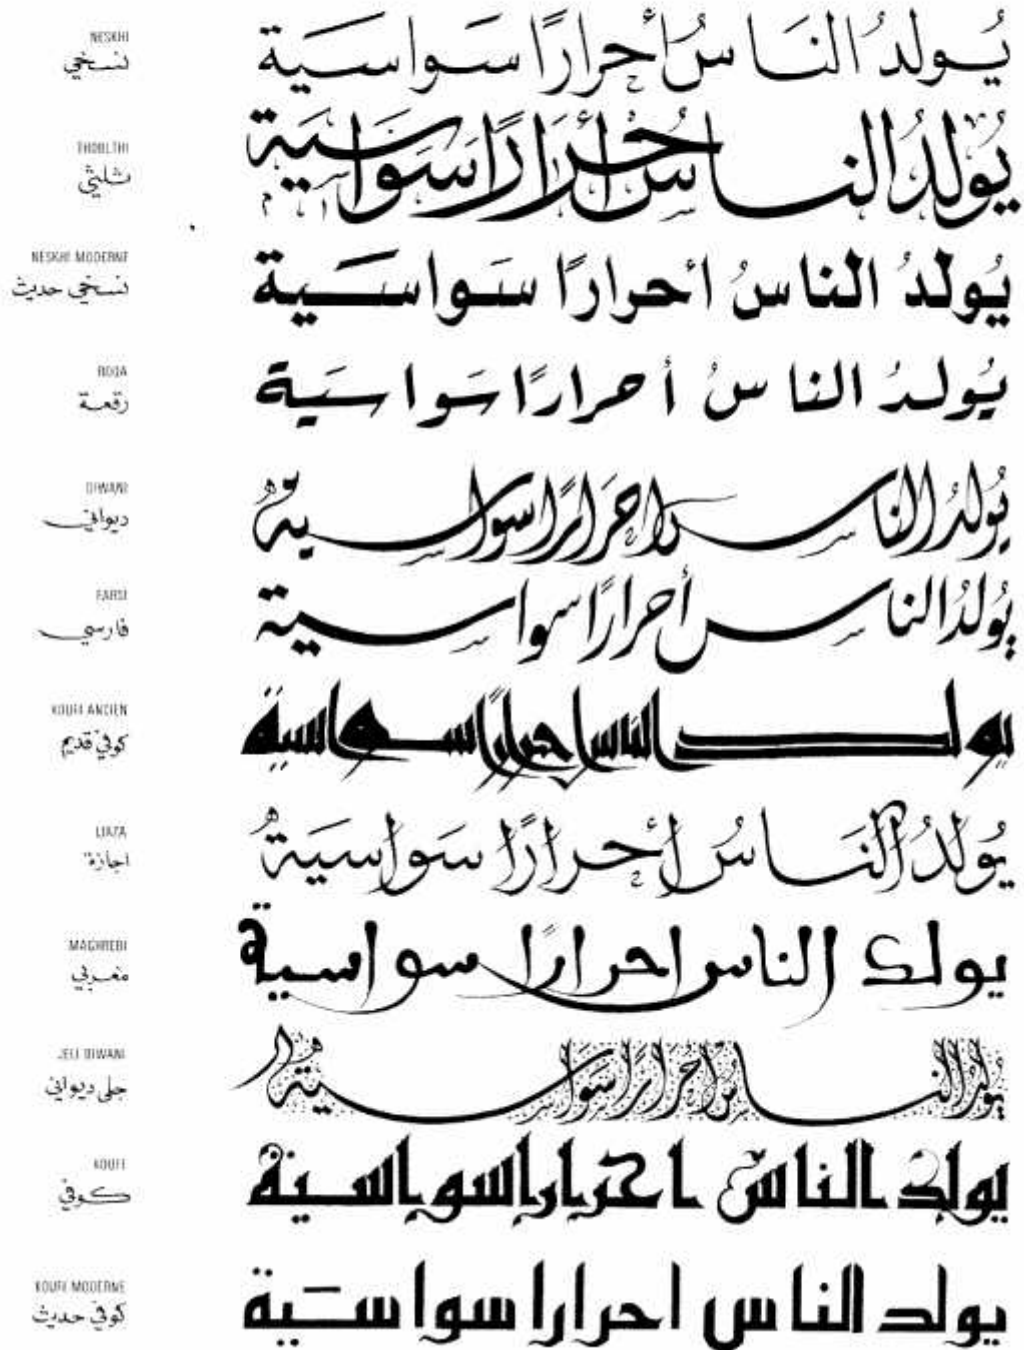 NESKHI
نسخي
يُولدُ النَاسُ أحرارًا سَواسَية
THOULTHI
ثلثي
يُولدُ الناسُ أحرارًا سَواسَية
NESKHI MODERNE
نسخي حديث
يُولدُ الناسُ أحرارًا سَواسَية
ROQA
رقعة
يُولدُ الناسُ أحرارًا سَواسَية
DIWANI
ديواني
يُولدُ الناس احرَارًا سواسية
FARSI
فارسي
يُولدُ الناس أحرارًا سواسية
KOUFI ANCIEN
كوفي قديم
يولد الناس احرارًا سواسية
IJAZA
اجازة
يُولدُ النَاسُ أحرارًا سَواسَيةُ
MAGHREBI
مغربي
يولد الناس احرارًا سواسية
JELI DIWANI
جلي ديواني
يُولدُ الناسُ احرَارًا سَواسية
KOUFI
كوفي
يولد الناس احرارا سواسية
KOUFI MODERNE
كوفي حديث
يولد الناس احرارا سواسَية